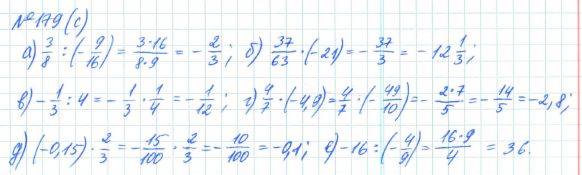 №179(с)
а) 3/8 : (-9/16) = 3·16/8·9 = -2/3; б) 37/63 · (-21) = -37/3 = -12 1/3;
в) -1/3 : 4 = -1/3 · 1/4 = -1/12; г) 4/7 · (-4,9) = 4/7 · (-49/10) = -2·7/5 = -14/5 = -2,8;
д) (-0,15) · 2/3 = -15/100 · 2/3 = -10/100 = -0,1; е) -16 : (-4/9) = 16·9/4 = 36.